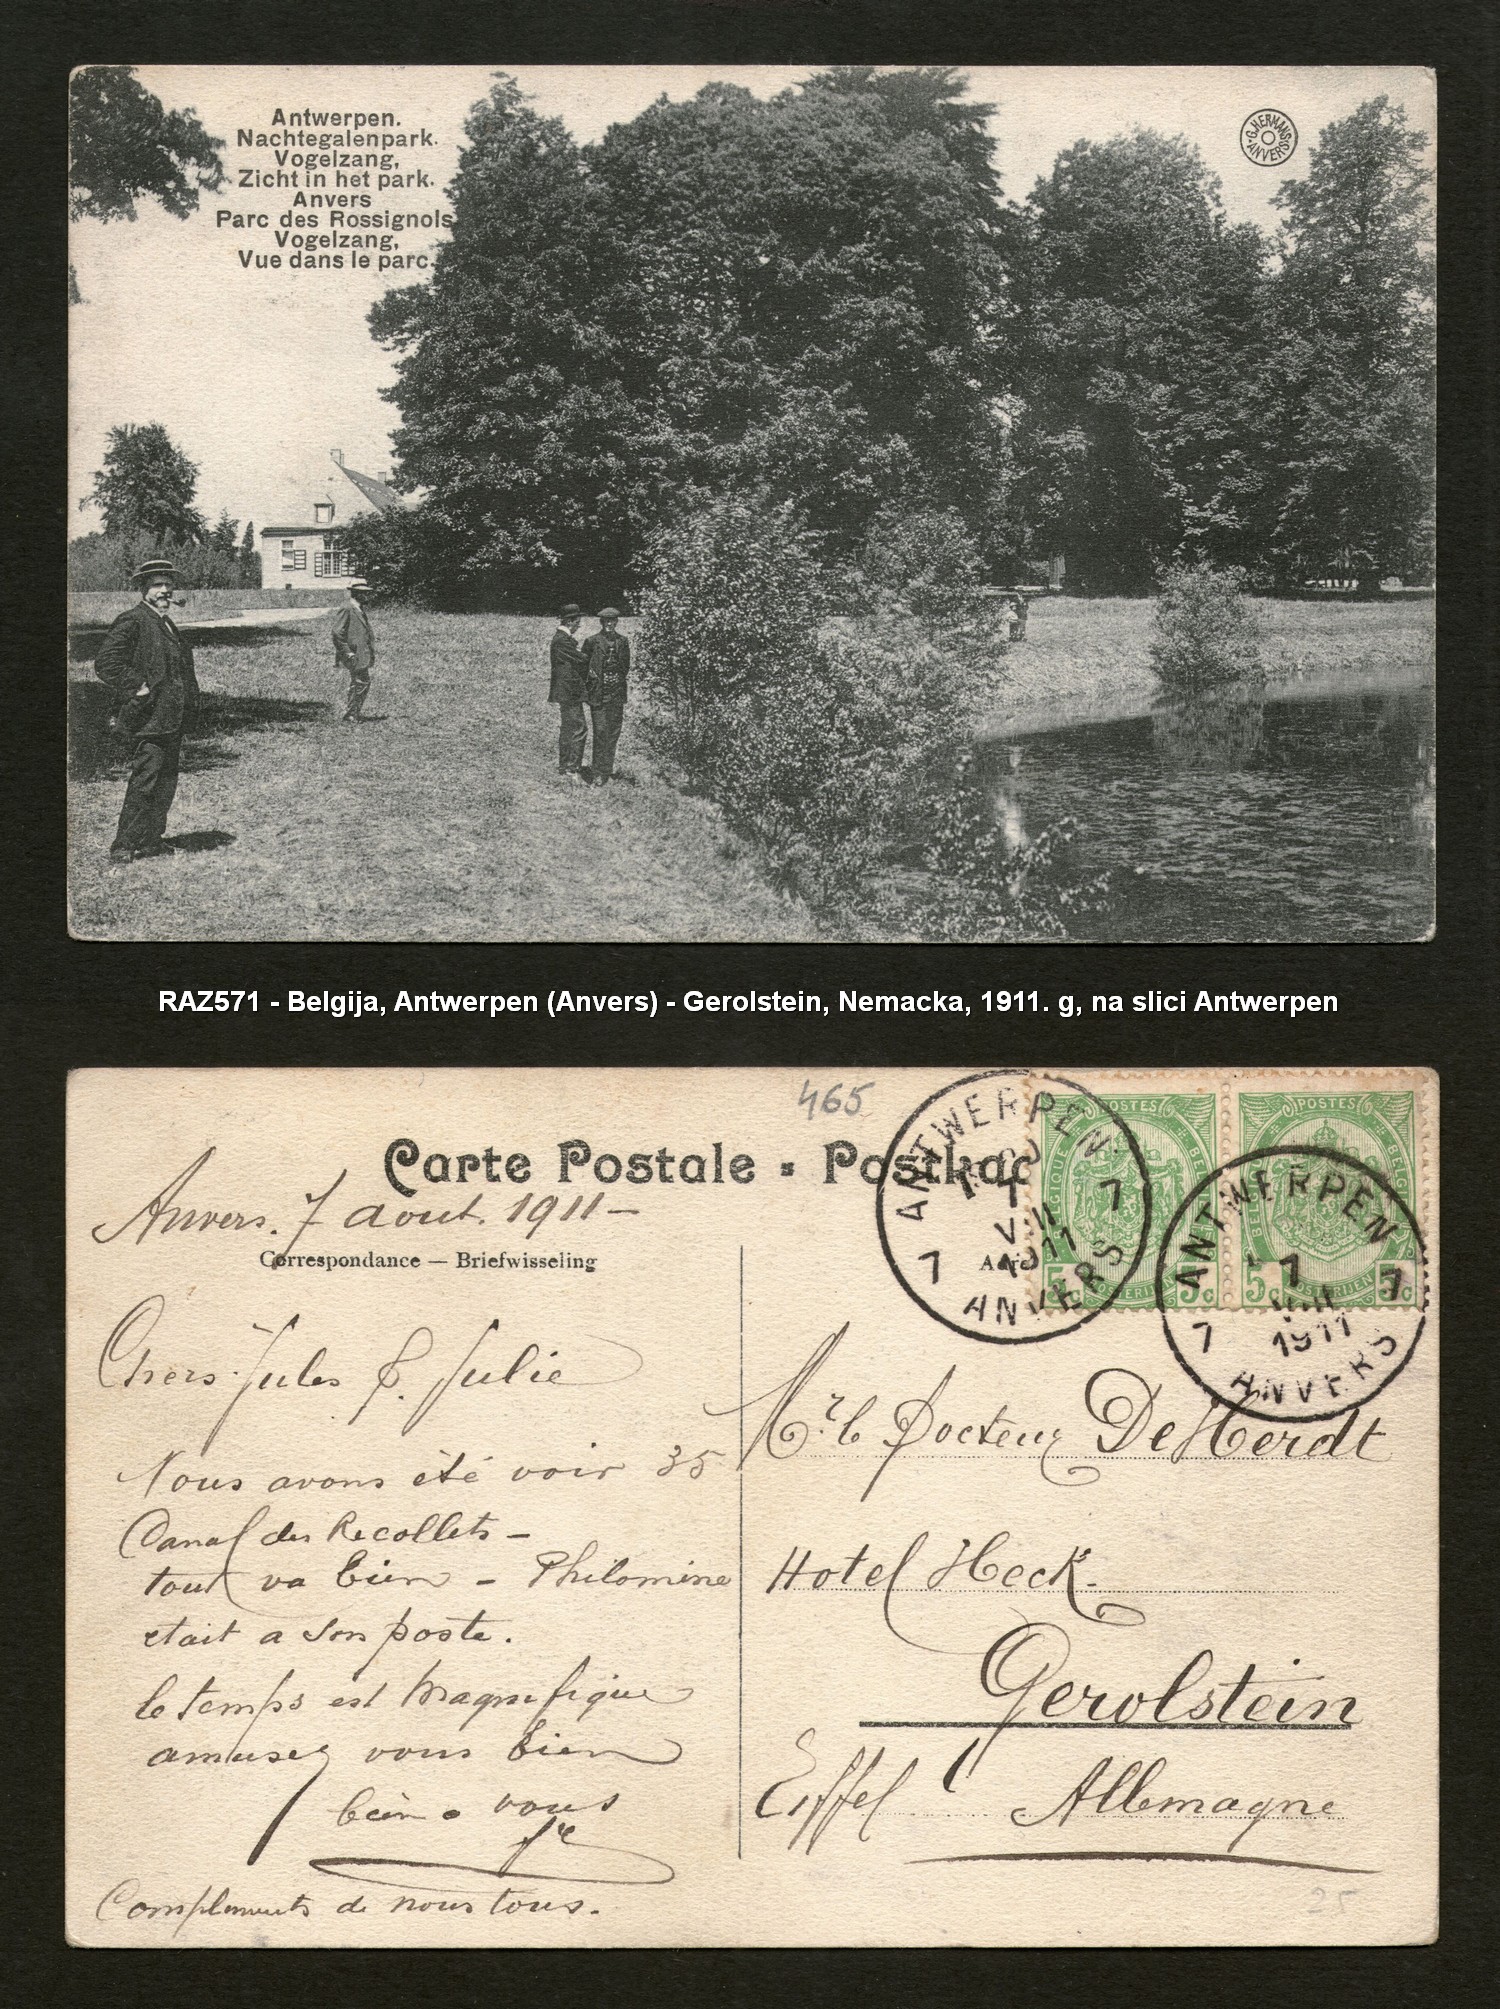 Antwerpen.
Nachtegalenpark.
Vogelzang,
Zicht in het park.
Anvers
Parc des Rossignols
Vogelzang,
Vue dans le parc.
G. HERMANS
ANVERS
RAZ571 - Belgija, Antwerpen (Anvers) - Gerolstein, Nemacka, 1911. g, na slici Antwerpen
465
Carte Postale - Postkaa
Anvers. 7 aout. 1911 -
Correspondance — Briefwisseling
Chers Jules & Julie
Nous avons été voir 35
Canal des Recollets -
tout va bien - Philomine
etait a son poste.
le temps est magnifique
amusez vous bien
bien a vous
Compliments de nous tous.
ANTWERPEN
7 7
VIII
1911
ANVERS
ANTWERPEN
7
7 7
VIII
1911
ANVERS
POSTES
BELGIQUE BEL
5c 5c
POSTERIJEN
POSTES
BELGIË
5c 5c
POSTERIJEN
Docteur De Herdt
Hotel Heck
Gerolstein
Eiffel Allemagne
25